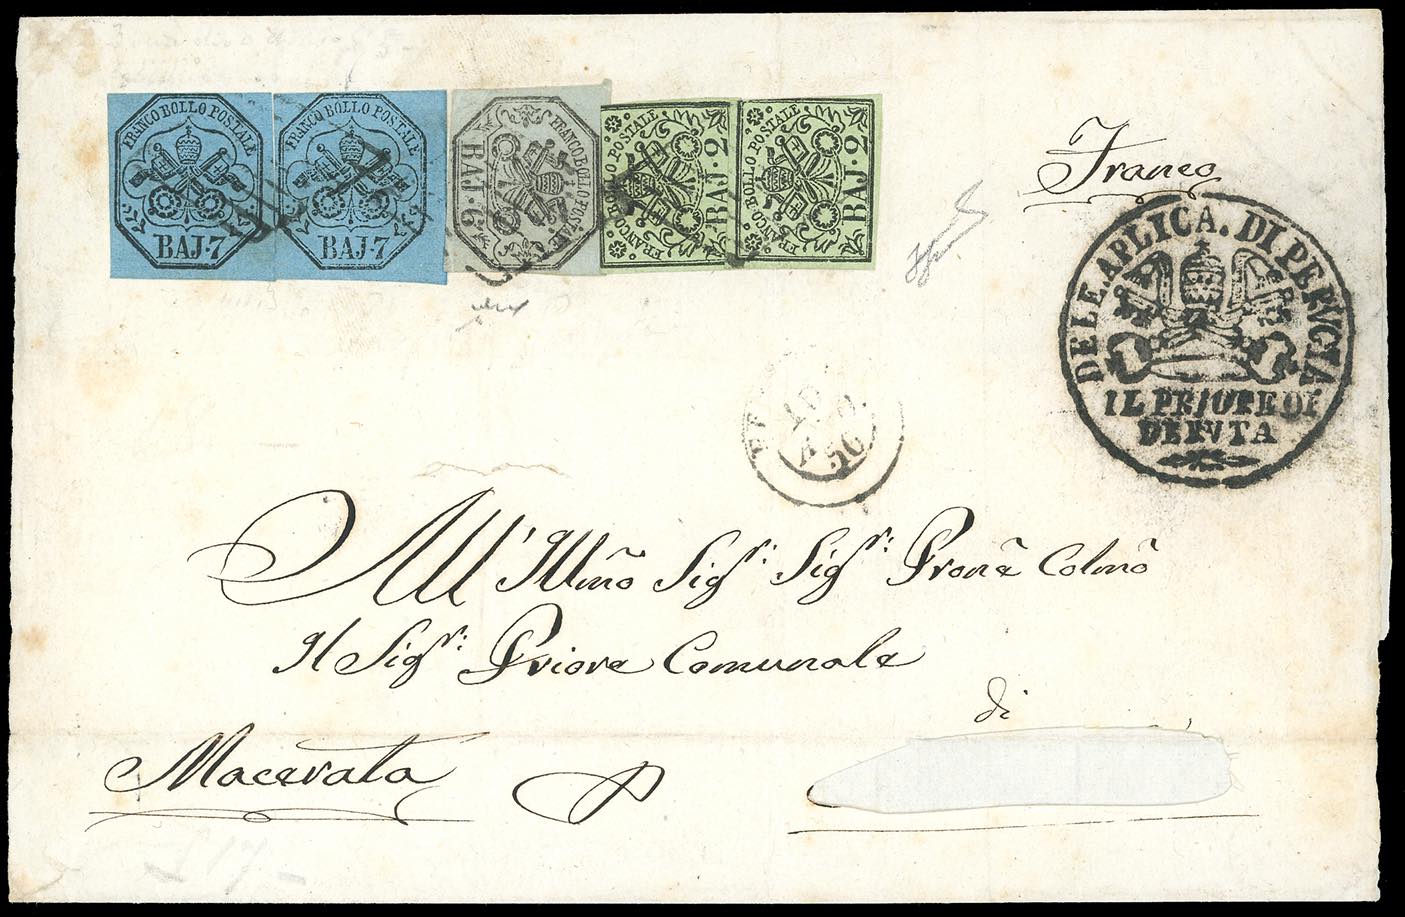 FRANCO BOLLO POSTALE
BAJ·7
FRANCO BOLLO POSTALE
BAJ·7
FRANCO BOLLO POSTALE
BAJ·6
FRANCO BOLLO POSTALE
BAJ·2
FRANCO BOLLO POSTALE
BAJ·2
Franco
DELE. APLICA. DI PERVGIA
IL PRIORE DI
DERVTA
All' Illmo Sigr: Sigr: Prone Colmo
Il Sigr: Priore Comunale
di
Macerata P